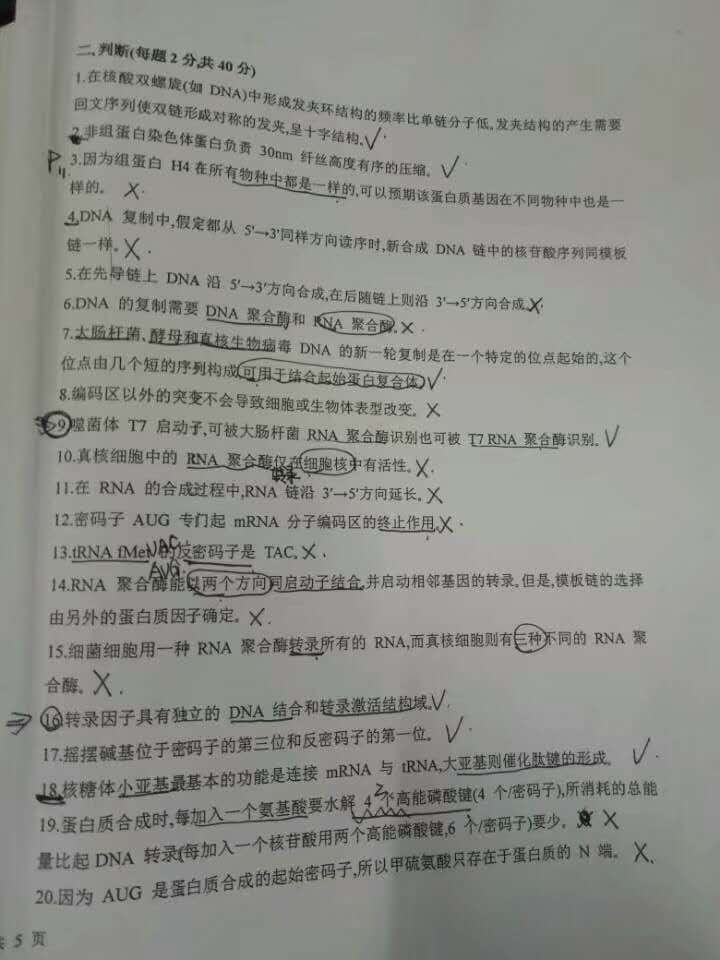 二、判断(每题2分,共40分)
1.在核酸双螺旋(如 DNA)中形成发夹环结构的频率比单链分子低,发夹结构的产生需要
回文序列使双链形成对称的发夹,是十字结构。✓
2.非组蛋白染色体蛋白负责 30nm 纤丝高度有序的压缩。✓
P11
3.因为组蛋白 H4 在所有物种中都是一样的,可以预期该蛋白质基因在不同物种中也是一
样的。 X
4.DNA 复制中,假定都从 5'→3'同样方向读序时,新合成 DNA 链中的核苷酸序列同模板
链一样。X
5.在先导链上 DNA 沿 5'→3'方向合成,在后随链上则沿 3'→5'方向合成。X
6.DNA 的复制需要 DNA 聚合酶和 RNA 聚合酶。X
7.大肠杆菌、酵母和真核生物病毒 DNA 的新一轮复制是在一个特定的位点起始的,这个
位点由几个短的序列构成,可用于结合起始蛋白复合体。✓
8.编码区以外的突变不会导致细胞或生物体表型改变。X
9.噬菌体 T7 启动子,可被大肠杆菌 RNA 聚合酶识别也可被 T7 RNA 聚合酶识别。✓
10.真核细胞中的 RNA 聚合酶仅在细胞核中有活性。X
转录
11.在 RNA 的合成过程中,RNA 链沿 3'→5'方向延长。X
12.密码子 AUG 专门起 mRNA 分子编码区的终止作用。X
UAC
13.tRNA fMet 的反密码子是 TAC。X
AUG
14.RNA 聚合酶能以两个方向同启动子结合,并启动相邻基因的转录,但是,模板链的选择
由另外的蛋白质因子确定。X
15.细菌细胞用一种 RNA 聚合酶转录所有的 RNA,而真核细胞则有三种不同的 RNA 聚
合酶。X
16.转录因子具有独立的 DNA 结合和转录激活结构域。✓
17.摇摆碱基位于密码子的第三位和反密码子的第一位。✓
18.核糖体小亚基最基本的功能是连接 mRNA 与 tRNA,大亚基则催化肽键的形成。✓
19.蛋白质合成时,每加入一个氨基酸要水解 4 个高能磷酸键(4 个/密码子),所消耗的总能
量比起 DNA 转录(每加入一个核苷酸用两个高能磷酸键,6 个/密码子)要少。X
20.因为 AUG 是蛋白质合成的起始密码子,所以甲硫氨酸只存在于蛋白质的 N 端。X
5 页